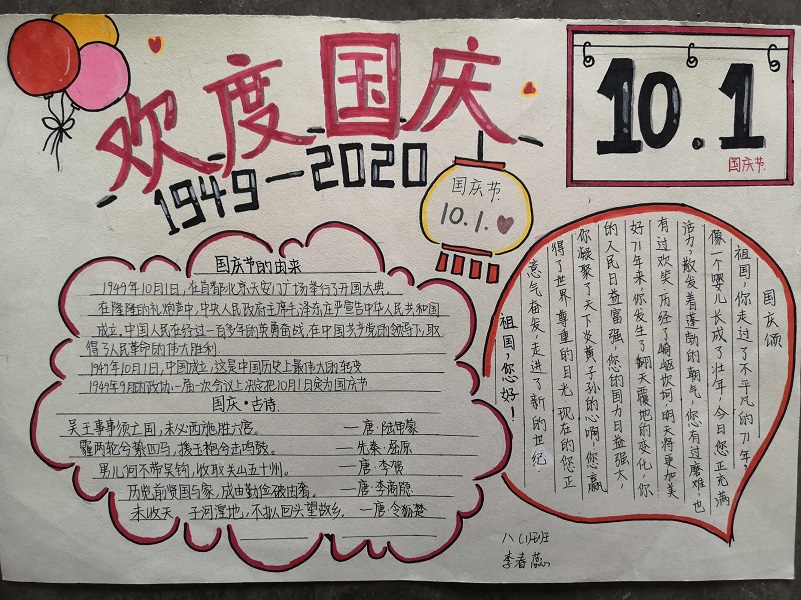 欢度国庆
1949—2020
10.1
国庆节
国庆节
10.1.
国庆节的由来
1949年10月1日,在首都北京天安门广场举行了开国大典.
在隆隆的礼炮声中,中央人民政府主席毛泽东庄严宣告中华人民共和国
成立,中国人民在经过一百多年的英勇奋战,在中国共产党的领导下,取
得了人民革命的伟大胜利.
1949年10月1日,中国成立,这是中国历史上最伟大的转变
1949年9月的政协一届一次会议上决定把10月1日定为国庆节
国庆·古诗.
吴王事事须亡国,未必西施胜六宫。 —唐·陆龟蒙
霾两轮兮絷四马,援玉枹兮击鸣鼓。 —先秦·屈原
男儿何不带吴钩,收取关山五十州。 —唐·李贺
历览前贤国与家,成由勤俭破由奢。 —唐·李商隐
未收天子河湟地,不拟回头望故乡。 —唐·令狐楚
国庆颂
祖国,你走过了不平凡的71年,
像一个婴儿长成了壮年,今日您正充满
活力,散发着蓬勃的朝气,您有过磨难,也
有过欢笑,历经了崎岖坎坷,明天将更加美
好71年来,你发生了翻天覆地的变化,你
的人民日益富强,您的国力日益强大,
你凝聚了天下炎黄子孙的心啊,您赢
得了世界尊重的目光,现在的您正
意气奋发,走进了新的世纪
祖国,您好!
八(1)班
李春蕊